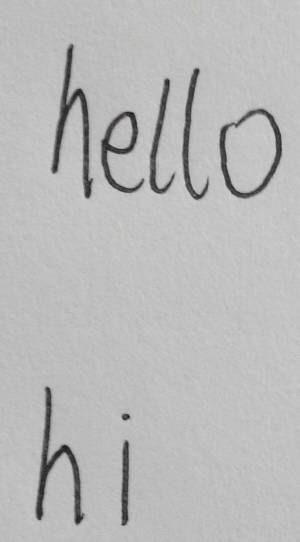 hello
hi